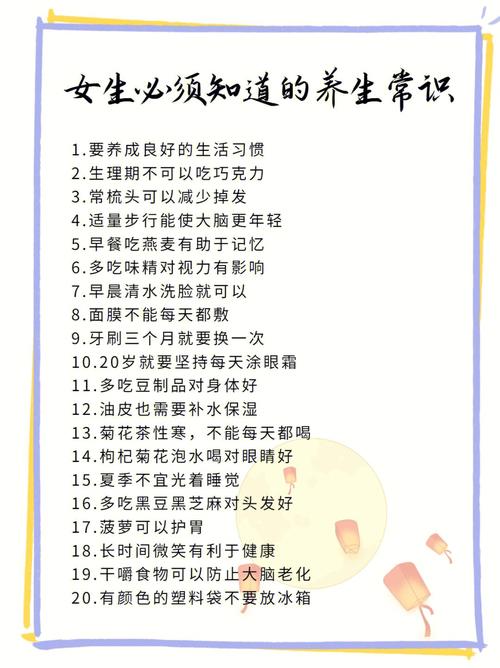 女生必须知道的养生常识
1.要养成良好的生活习惯
2.生理期不可以吃巧克力
3.常梳头可以减少掉发
4.适量步行能使大脑更年轻
5.早餐吃燕麦有助于记忆
6.多吃味精对视力有影响
7.早晨清水洗脸就可以
8.面膜不能每天都敷
9.牙刷三个月就要换一次
10.20岁就要坚持每天涂眼霜
11.多吃豆制品对身体好
12.油皮也需要补水保湿
13.菊花茶性寒，不能每天都喝
14.枸杞菊花泡水喝对眼睛好
15.夏季不宜光着睡觉
16.多吃黑豆黑芝麻对头发好
17.菠萝可以护胃
18.长时间微笑有利于健康
19.干嚼食物可以防止大脑老化
20.有颜色的塑料袋不要放冰箱